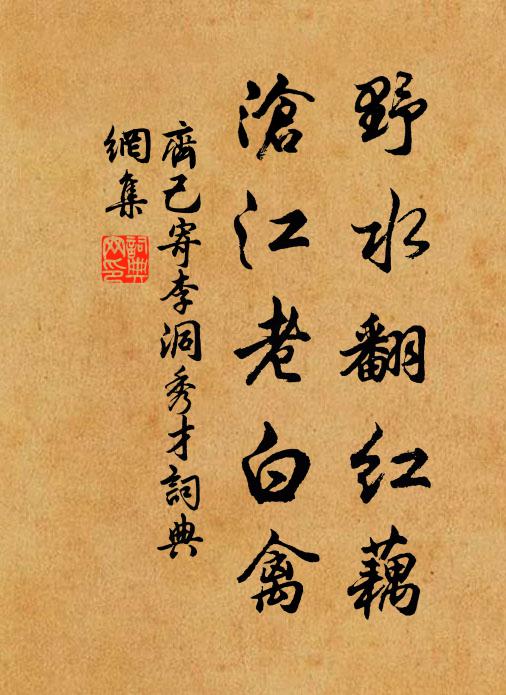 野水翻紅藕
滄江老白禽
齊己寄李洞秀才詞典
網集
詞典
网印